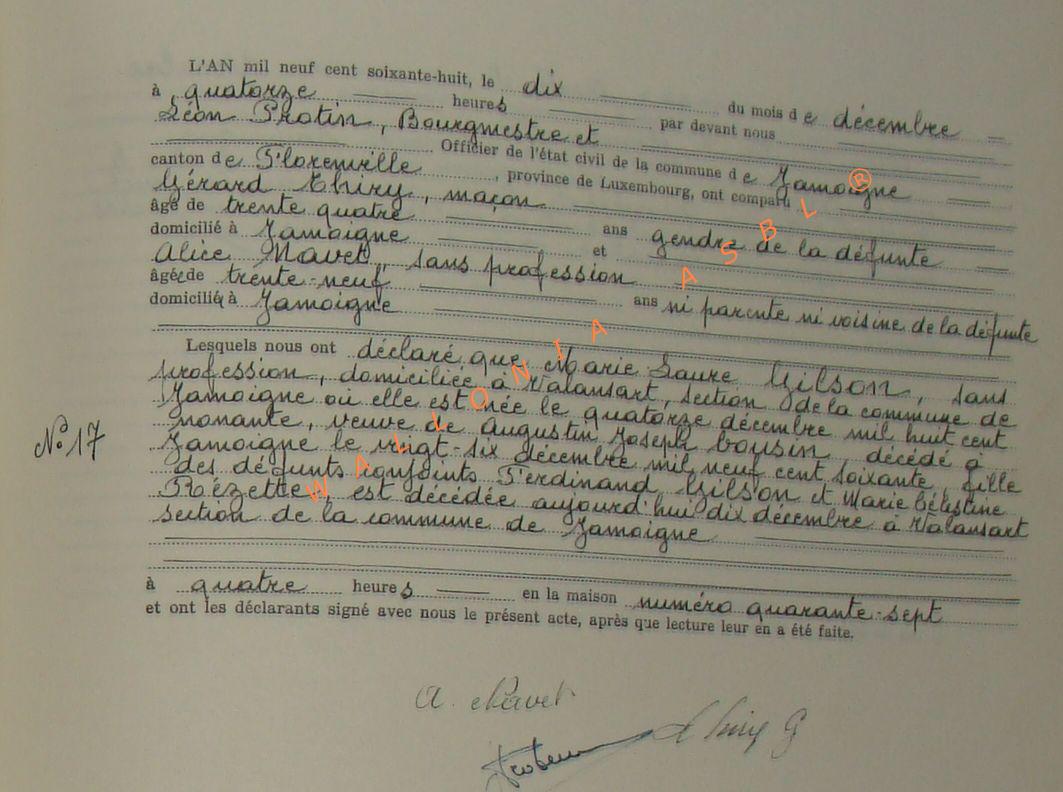 L'AN mil neuf cent soixante-huit, le dix du mois de décembre
à quatorze heures par devant nous
Léon Protin, Bourgmestre et
Officier de l'état civil de la commune de Jamoigne
canton de Florenville, province de Luxembourg, ont comparu
Gérard Thiry, maçon
âgé de trente quatre ans gendre de la défunte
domicilié à Jamoigne et
Alice Navet, sans profession
âgée de trente-neuf ans ni parente ni voisine de la défunte
domiciliée à Jamoigne
Lesquels nous ont déclaré que Marie Laure Gilson, sans
profession, domiciliée à Valansart, section de la commune de
Jamoigne où elle est née le quatorze décembre mil huit cent
nonante, veuve de Augustin Joseph Cousin, décédé à
Jamoigne le vingt-six décembre mil neuf cent soixante, fille
des défunts conjoints Ferdinand Gilson et Marie Célestine
Rézette, est décédée aujourd'hui dix décembre à Valansart
section de la commune de Jamoigne
à quatre heures en la maison numéro quarante-sept
et ont les déclarants signé avec nous le présent acte, après que lecture leur en a été faite.
N° 17
A. Navet
Thiry G
WALLONIA ASBL ®